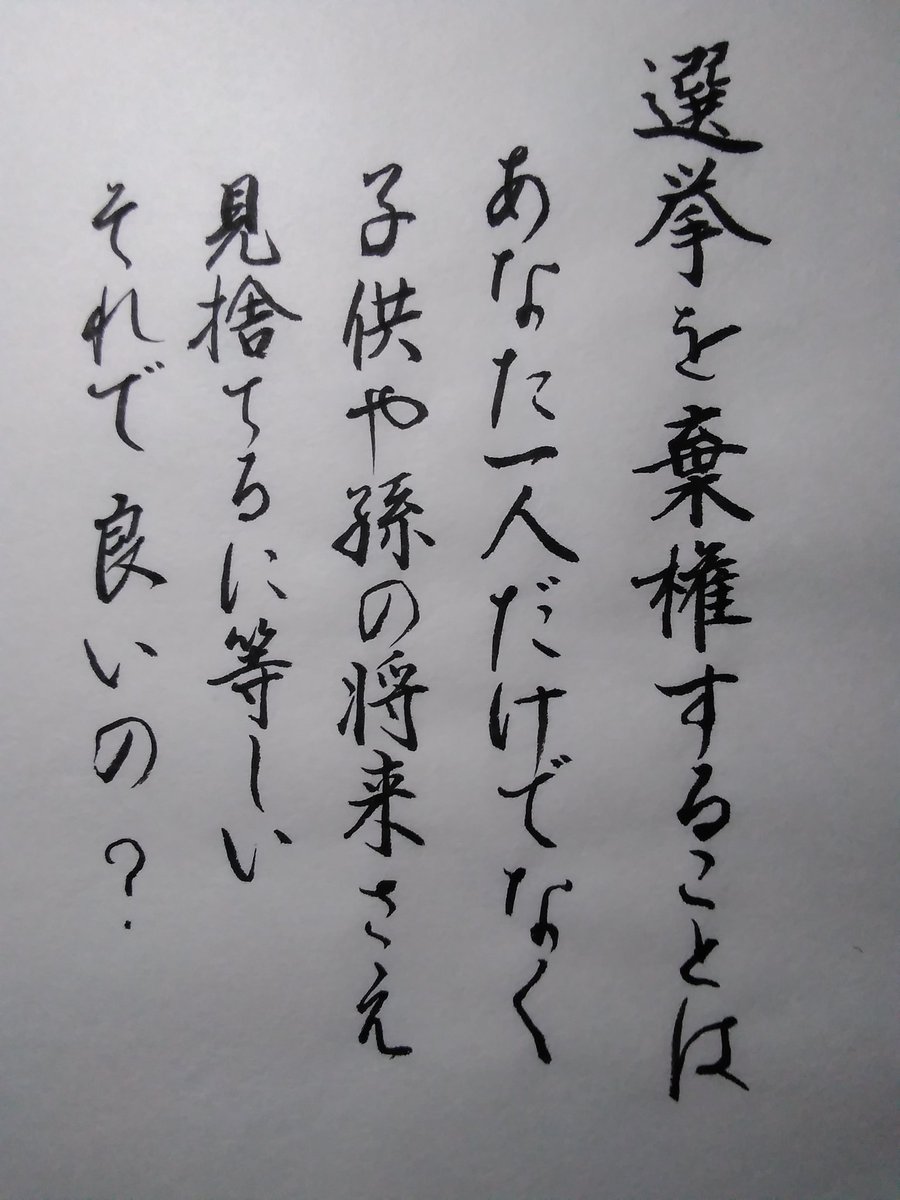 選挙を棄権することは
あなた一人だけでなく
子供や孫の将来さえ
見捨てるに等しい
それで良いの？